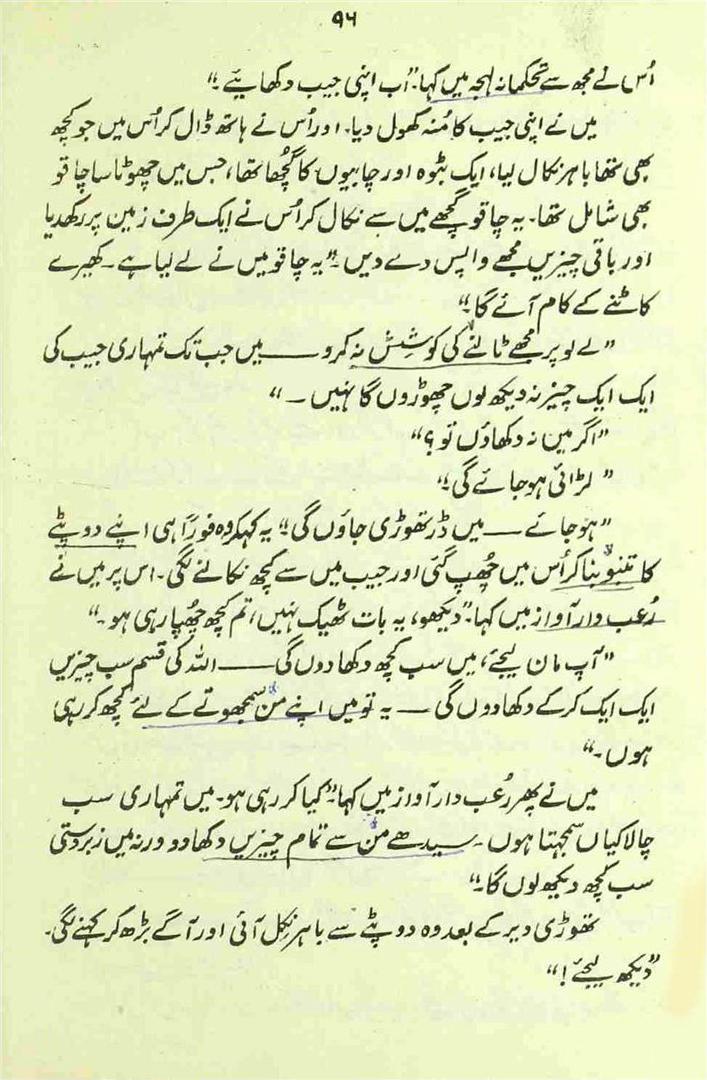 ۹۶
اُس نے مجھ سے تحکمانہ لہجہ میں کہا۔ ”اب اپنی جیب دکھایئے۔“
میں نے اپنی جیب کا مُنہ کھول دیا۔ اور اُس نے ہاتھ ڈال کر اُس میں جو کچھ
بھی تھا باہر نکال لیا، ایک بٹوہ اور چابیوں کا گچھا تھا، جس میں چھوٹا سا چاقو
بھی شامل تھا۔ یہ چاقو گچھے میں سے نکال کر اُس نے ایک طرف زمین پر رکھدیا
اور باقی چیزیں مجھے واپس دے دیں۔ ”یہ چاقو میں نے لے لیا ہے۔ کھیرے
کاٹنے کے کام آئے گا۔“
”لے لو پر مجھے ٹالنے کی کوشِش نہ کرو ـــــ میں جب تک تمہاری جیب کی
ایک ایک چیز نہ دیکھ لوں چھوڑوں گا نہیں ـ“
”اگر میں نہ دکھاؤں تو؟“
”لڑائی ہو جائے گی۔“
”ہو جائے ـــ میں ڈر تھوڑی جاؤں گی۔“ یہ کہکر وہ فوراً ہی اپنے دوپٹے
کا تنبو بنا کر اُس میں چُھپ گئی اور جیب میں سے کچھ نکالنے لگی۔ اس پر میں نے
رُعب دار آواز میں کہا۔ ”دیکھو، یہ بات ٹھیک نہیں، تم کچھ چُھپا رہی ہو۔“
”آپ مان لیجئے، میں سب کچھ دکھا دوں گی ـــــ اللہ کی قسم سب چیزیں
ایک ایک کر کے دکھا دوں گی ـــ یہ تو میں اپنے من سمجھوتے کے لئے کچھ کر رہی
ہوں۔“
میں نے پھر رُعب دار آواز میں کہا۔ ”کیا کر رہی ہو۔ میں تمہاری سب
چالاکیاں سمجھتا ہوں۔ سیدھے من سے تمام چیزیں دکھا دو ورنہ میں زبردستی
سب کچھ دیکھ لوں گا۔“
تھوڑی دیر کے بعد وہ دوپٹے سے باہر نِکل آئی اور آگے بڑھ کر کہنے لگی۔
”دیکھ لیجئے!“